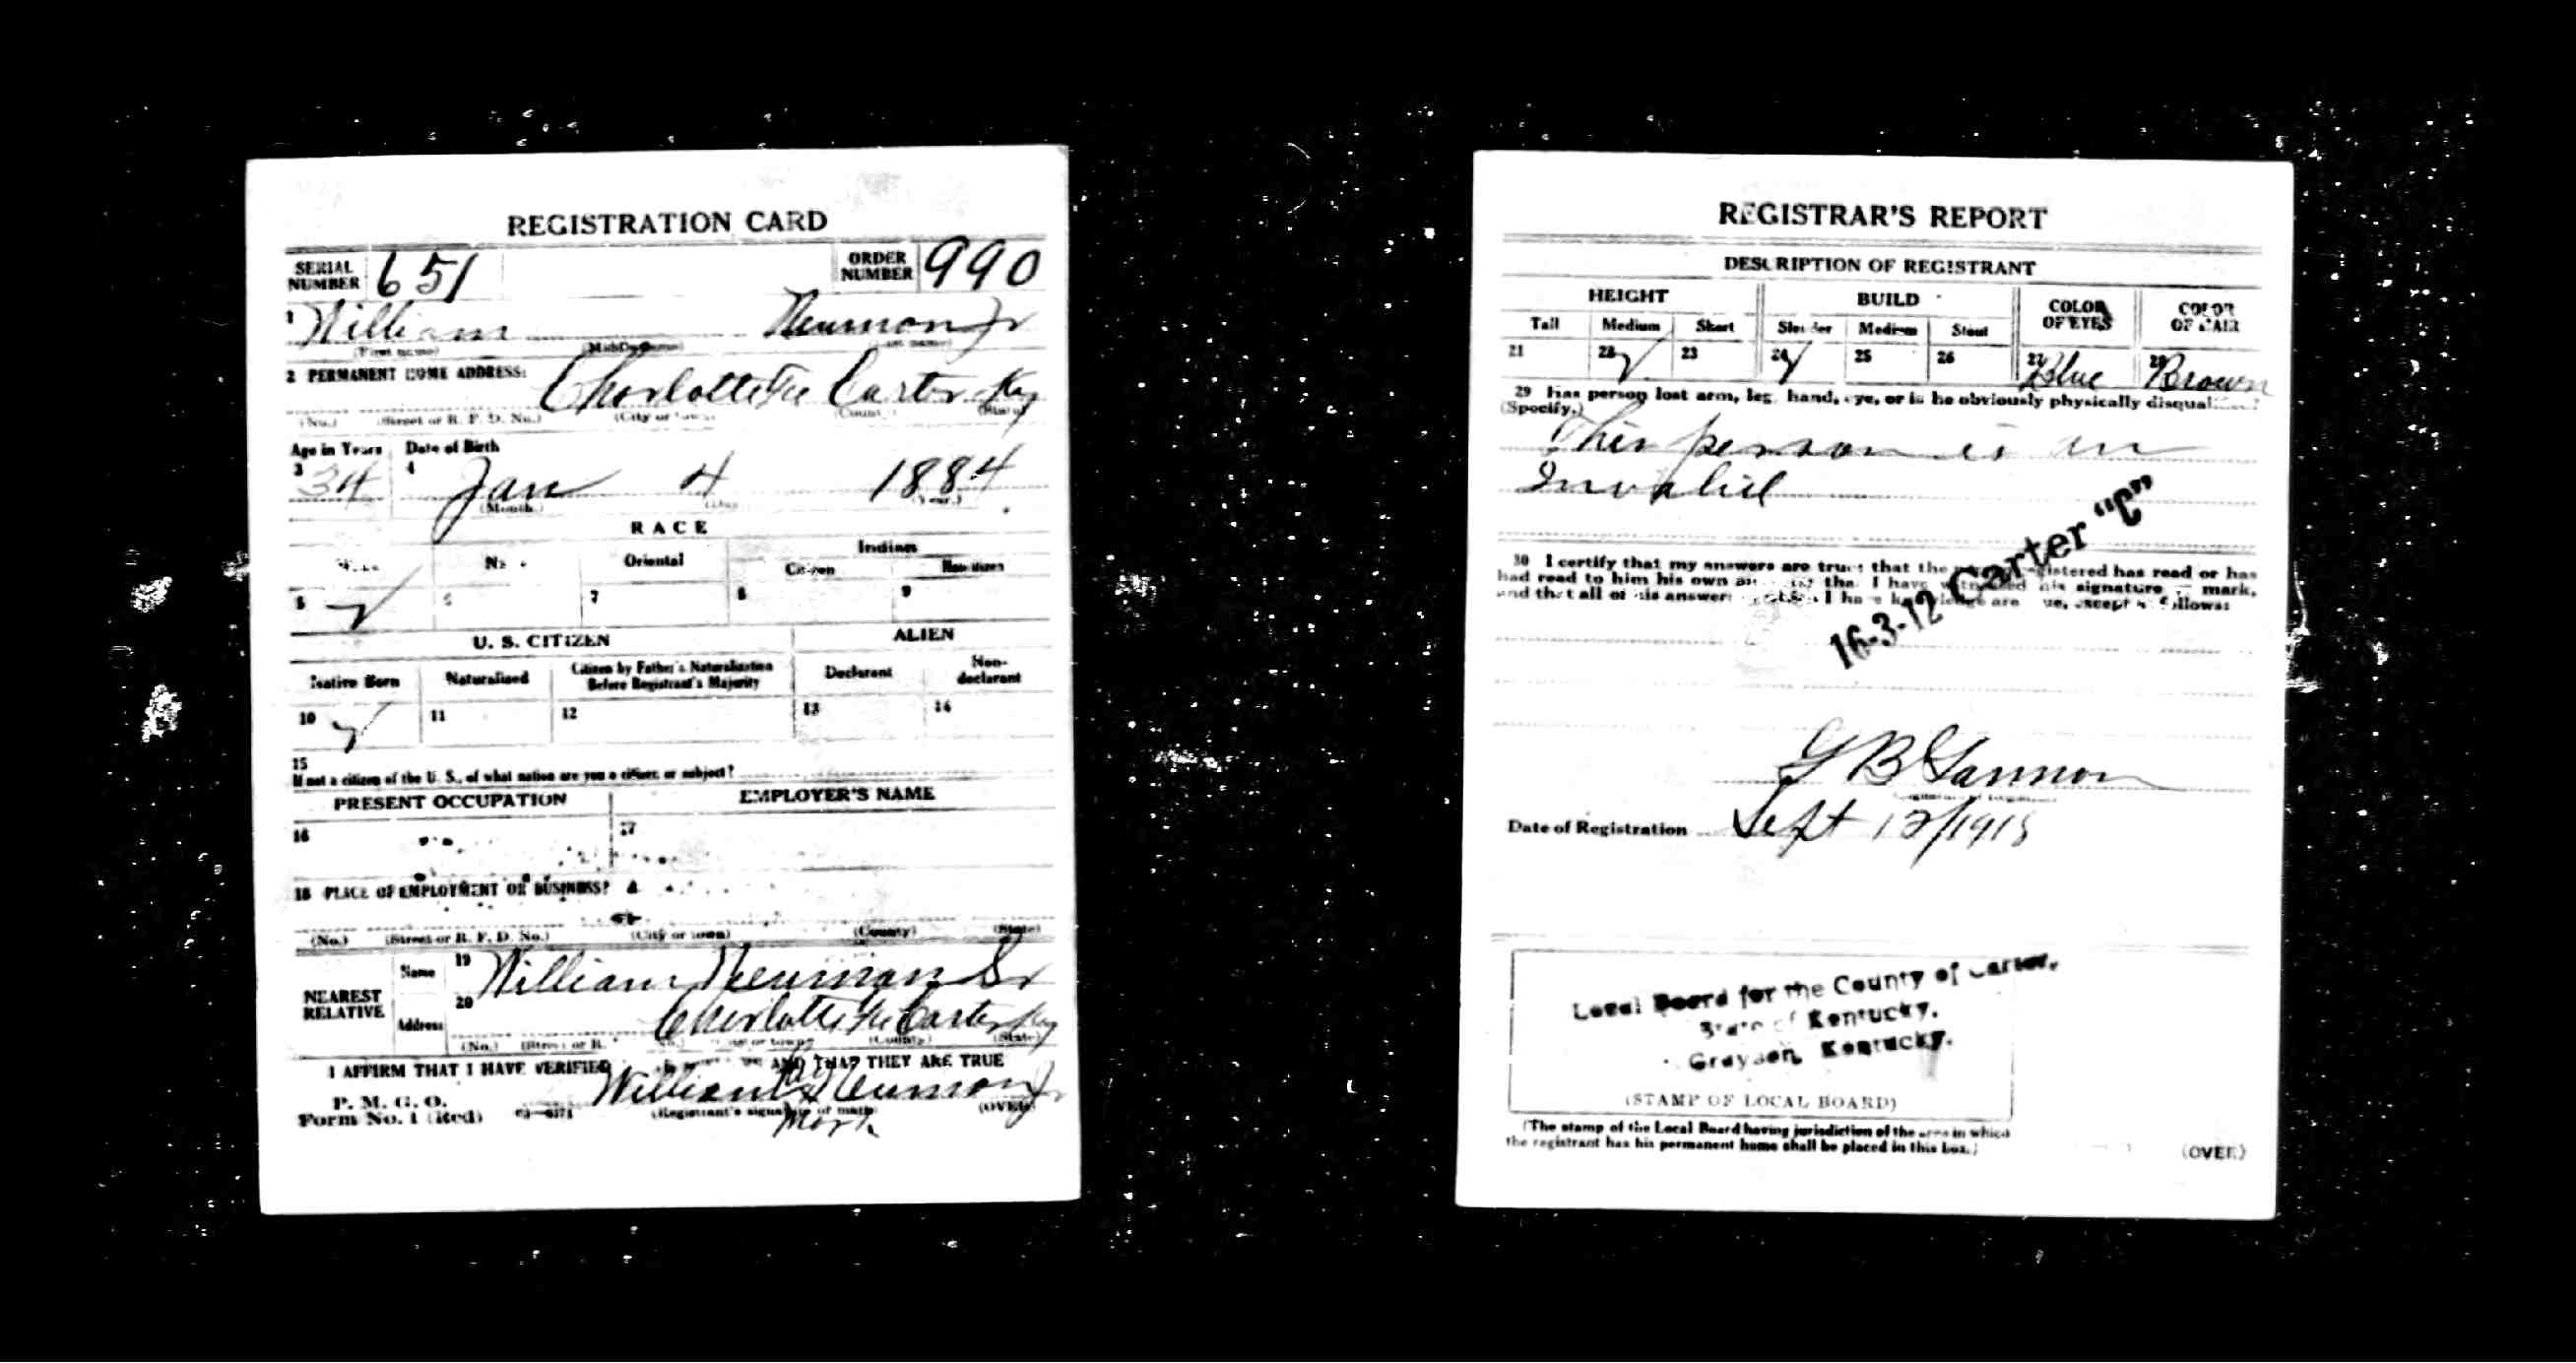 REGISTRATION CARD
SERIAL NUMBER 651 ORDER NUMBER 990
1 William Neuman Jr
(First name) (Middle name) (Last name)
2 PERMANENT HOME ADDRESS: Charlotte Fe Carter Ky
(No.) (Street or R. F. D. No.) (City or town) (County) (State)
Age in Years Date of Birth
3 34 4 Jan 4 1884
(Month.) (Day (Year.)
RACE
Oriental Indian
Citizen
5 6 7 8 9
U. S. CITIZEN ALIEN
Native Born Naturalized Citizen by Father's Naturalization Before Registrant's Majority Declarant Non-declarant
10 11 12 13 14
15
If not a citizen of the U. S., of what nation are you a citizen or subject?
PRESENT OCCUPATION EMPLOYER'S NAME
16 17
18 PLACE OF EMPLOYMENT OR BUSINESS?
(No.) (Street or R. F. D. No.) (City or town) (County) (State)
NEAREST RELATIVE Name 19 William Neuman Sr
Address 20 Charlotte Fe Carter Ky
(No.) (Street or R. (County) (State)
I AFFIRM THAT I HAVE VERIFIED AND THAT THEY ARE TRUE
P. M. G. O.
Form No. 1 (Red) William Neuman Jr
(Registrant's signature or mark) (OVER)
Mark
REGISTRAR'S REPORT
DESCRIPTION OF REGISTRANT
HEIGHT BUILD COLOR OF EYES COLOR OF HAIR
Tall Medium Short Slender Medium Stout
21 22 23 24 25 26 27 Blue 28 Brown
29 Has person lost arm, leg, hand, eye, or is he obviously physically
(Specify.)
This person is in
Invalid
30 I certify that my answers are true; that the registered has read or has
had read to him his own that I have witnessed his signature mark,
and that all of his answers I have knowledge are true, except as follows:
16-3-12 Carter "C"
G B Gannon
Date of Registration Sept 12/1918
Local Board for the County of Carter,
State of Kentucky,
Grayson, Kentucky.
(STAMP OF LOCAL BOARD)
(The stamp of the Local Board having jurisdiction of the area in which
the registrant has his permanent home shall be placed in this box.)
(OVER)